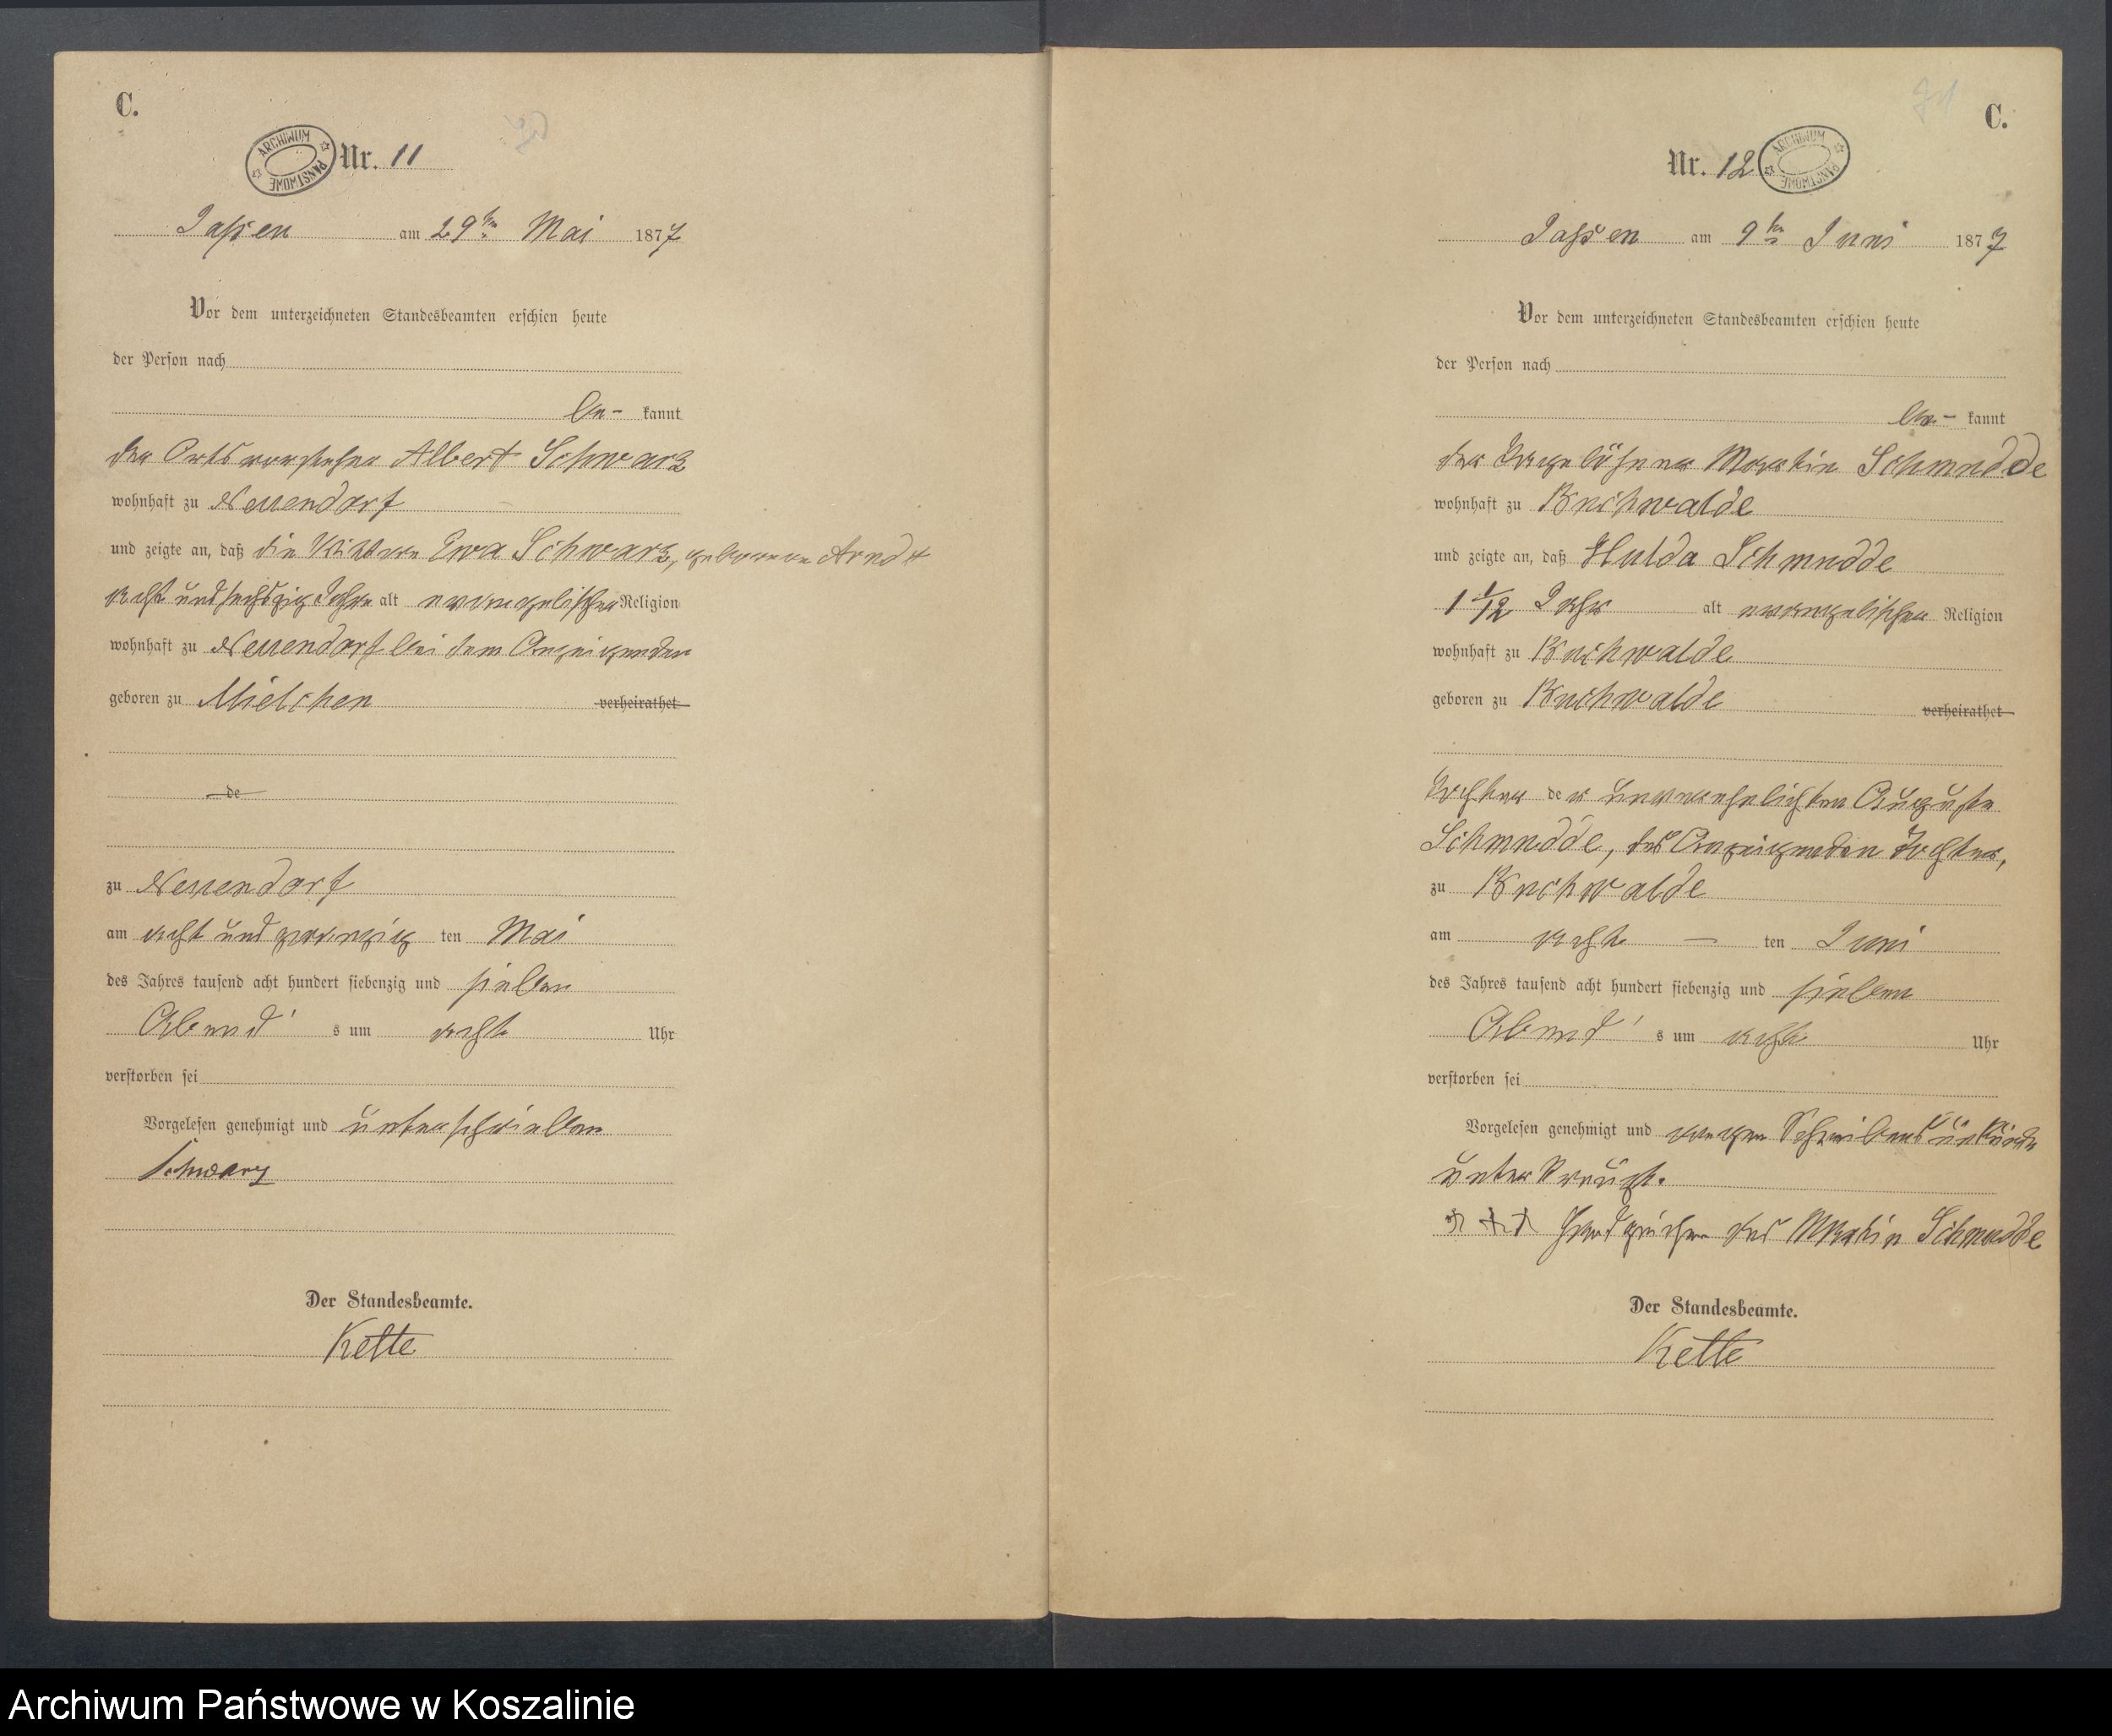 C.
ARCHIWUM PAŃSTWOWE
Nr. 11
Jassen am 29ten Mai 1877
Vor dem unterzeichneten Standesbeamten erschien heute
der Person nach
be- kannt
der Ortsvorsteher Albert Schwarz
wohnhaft zu Neuendorf
und zeigte an, daß die Wittwe Eva Schwarz, geborene Arndt
acht und sechszig Jahre alt evangelischer Religion
wohnhaft zu Neuendorf bei dem Anzeigenden
geboren zu Mielchen verheirathet
de
zu Neuendorf
am acht und zwanzig ten Mai
des Jahres tausend acht hundert siebenzig und sieben
Abend s um acht Uhr
verstorben sei
Vorgelesen genehmigt und unterschrieben
Schwarz
Der Standesbeamte.
Kette
71
C.
Nr. 12
ARCHIWUM PAŃSTWOWE
Jassen am 9ten Juni 1877
Vor dem unterzeichneten Standesbeamten erschien heute
der Person nach
be- kannt
der Tagelöhner Martin Schmudde
wohnhaft zu Buchwalde
und zeigte an, daß Hulda Schmudde
1 1/12 Jahr alt evangelischer Religion
wohnhaft zu Buchwalde
geboren zu Buchwalde verheirathet
Tochter der unverehelichten Auguste
Schmudde, des Anzeigenden Tochter,
zu Buchwalde
am acht — ten Juni
des Jahres tausend acht hundert siebenzig und sieben
Abend s um acht Uhr
verstorben sei
Vorgelesen genehmigt und wegen Schreibensunkunde
unterkreuzt.
+++ Handzeichen des Martin Schmudde
Der Standesbeamte.
Kette
Archiwum Państwowe w Koszalinie